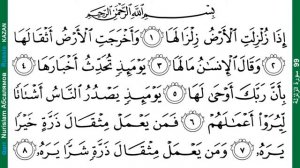 بِسْمِ ٱللَّهِ ٱلرَّحْمَٰنِ ٱلرَّحِيمِ
إِذَا زُلْزِلَتِ ٱلْأَرْضُ زِلْزَالَهَا ١ وَأَخْرَجَتِ ٱلْأَرْضُ أَثْقَالَهَا
٢ وَقَالَ ٱلْإِنسَٰنُ مَا لَهَا ٣ يَوْمَئِذٍ تُحَدِّثُ أَخْبَارَهَا ٤
بِأَنَّ رَبَّكَ أَوْحَىٰ لَهَا ٥ يَوْمَئِذٍ يَصْدُرُ ٱلنَّاسُ أَشْتَاتًا
لِّيُرَوْا۟ أَعْمَٰلَهُمْ ٦ فَمَن يَعْمَلْ مِثْقَالَ ذَرَّةٍ خَيْرًا
يَرَهُۥ ٧ وَمَن يَعْمَلْ مِثْقَالَ ذَرَّةٍ شَرًّا يَرَهُۥ ٨
99 سورة الزلزلة
Nurislam Абсалямов
KAZAN